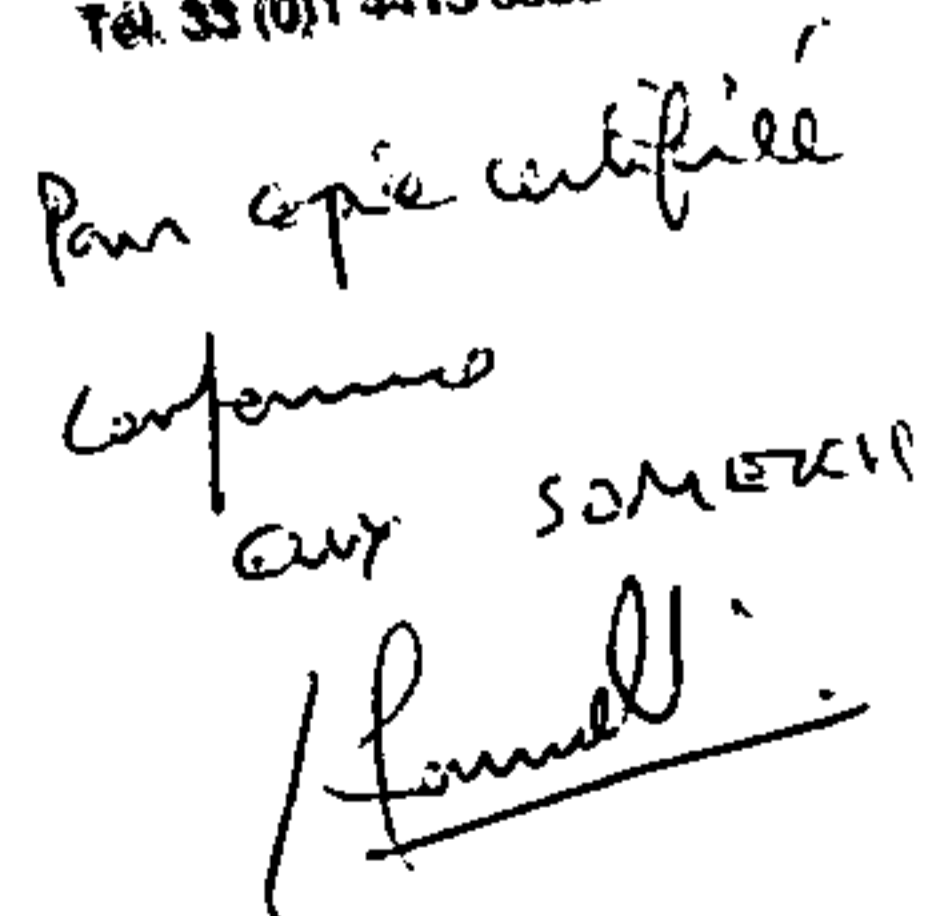 Tél. 33 (0)1 4413
Pour copie certifiée
conforme
Guy SOMEKH